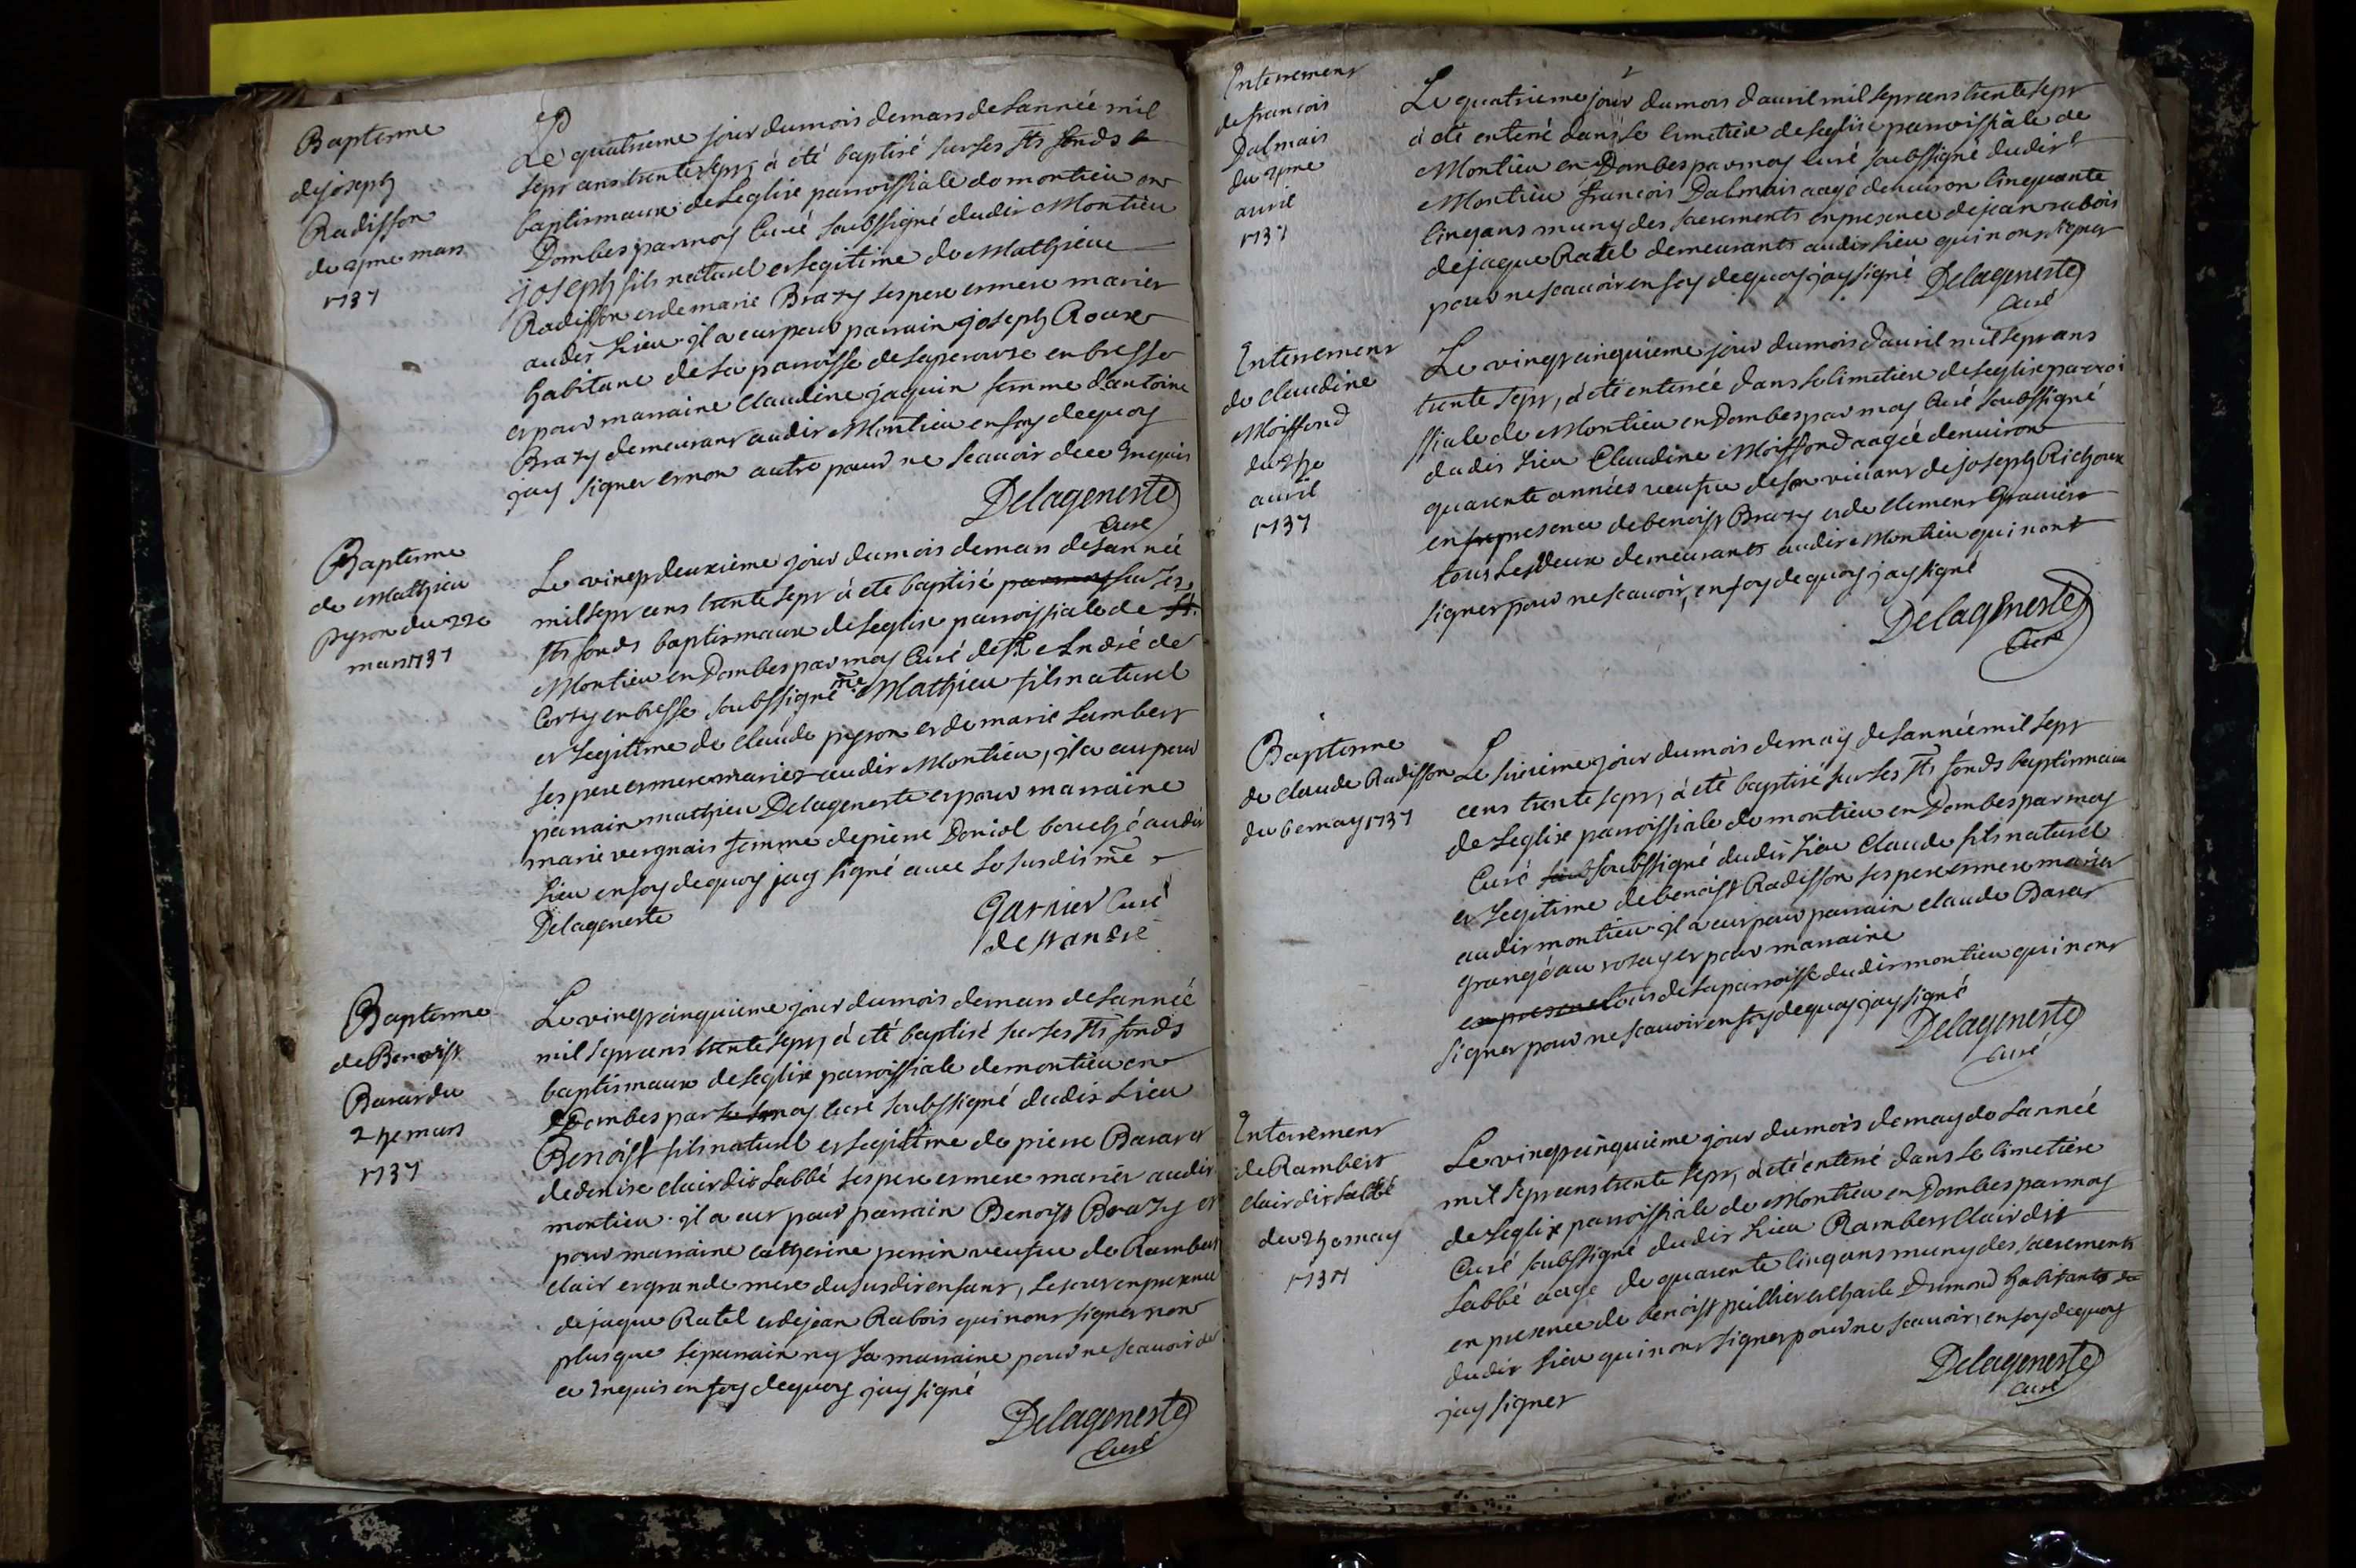 Baptesme
de joseph
Radisson
du 4me mars
1737
Le quatrieme jour du mois de mars de Lannée mil
sept cens trente sept, à été baptisé sur les sts fonds
baptismaux de Leglise parroissiale de montieu en
Dombes par moy Curé soubssigné dudit Montieu
joseph fils naturel et legitime de Mathieu
Radisson et de marie Brazy ses pere et mere mariez
audit Lieu il a eut pour parrain joseph Roux
habitant de la parroisse de Laperouse en bresse
et pour marraine Claudine jaquin femme dantoine
Brazy demeurant audit Montieu en foy de quoy
jay signer et non autre pour ne Scauoir de ce Enquis
Delageneste
Curé
Baptesme
de Mathieu
Pyron du 22e
mars 1737
Le vingt deuxieme jour du mois de mars de Lannée
mil sept cens trente sept à été baptisé par moy sur les
sts fonds baptismaux de Leglise parroissiale de st.
Montieu en Dombes par moy Curé de st André de
Corsy en bresse soubssigné me Mathieu fils naturel
et Legitime de Claude pyron et de marie Lambert
ses pere et mere mariez audit Montieu, il a eut pour
parrain mathieu Delageneste et pour marraine
marie vergnais femme de pierre Doniol bouché audit
Lieu en foy de quoy jay signé auec le susdit me
Delageneste
Garnier Curé
de st andré
Baptesme
de Benoist
Barar du
25e mars
1737
Le vingt cinquieme jour du mois de mars de Lannée
mil sept cens trente sept, à été baptisé sur les sts fonds
baptismaux de Leglise parroissiale de montieu en
Dombes par moy Curé soubssigné dudit Lieu
Benoist fils naturel et legitime de pierre Barar et
de denise clair dit Labbé ses pere et mere mariez audit
montieu il a eut pour parrain Benoist Brazy et
pour marraine catherine perrin veufue de Rambert
clair et grande mere du susdit enfant, Le tout en presence
de jaque Ratel et de jean Rabois qui n'ont signer non
plus que le parrain ny La marraine pour ne Scauoir de
ce Enquis en foy de quoy jay signé
Delageneste
Curé
Enterrement
de francois
Dalmais
du 4me
auril
1737
Le quatrieme jour du mois dauril mil sept cens trente sept
à été enterré dans le Cimetiere de Leglise parroissiale de
Montieu en Dombes par moy Curé soubssigné dudit
Montieu francois Dalmais aagé denuiron Cinquante
Cinq ans muny des sacrements en presence de jean rabois
de jaque Ratel demeurants audit Lieu qui n'ont signer
pour ne scauoir en foy de quoy jay signé
Delageneste
Curé
Enterrement
de Claudine
Moissond
du 25e
auril
1737
Le vingt cinquieme jour du mois dauril mil sept cens
trente sept, à été enterrée dans le Cimetiere de Leglise parroi
ssiale de Montieu en Dombes par moy Curé soubssigné
dudit Lieu Claudine Moissond aagée denuiron
quarente années veufue de son viuant de joseph Richoux
en presence de benoist Brazy et de Clement Grauiere
tous Les deux demeurants audit Montieu qui n'ont
signer pour ne scauoir, en foy de quoy jay signé
Delageneste
Curé
Baptesme
de claude Radisson
du 6e may 1737
Le sixieme jour du mois de may de Lannée mil sept
cens trente sept, à été baptisé sur les sts fonds baptismaux
de Leglise parroissiale de montieu en Dombes par moy
Curé soubssigné dudit Lieu Claude fils naturel
et Legitime de benoist Radisson ses pere et mere mariez
audit montieu il a eut pour parrain claude Barar
grangé au rosay et pour marraine
en presence tous de la parroisse dudit montieu qui n'ont
signer pour ne scauoir en foy de quoy jay signé
Delageneste
Curé
Enterrement
de Rambert
clair dit Labbé
du 25e may
1737
Le vingt cinquieme jour du mois de may de Lannée
mil sept cens trente sept, à été enterré dans le Cimetiere
de Leglise parroissiale de Montieu en Dombes par moy
Curé soubssigné dudit Lieu Rambert Clair dit
Labbé aagé de quarente Cinq ans muny des sacrements
en presence de benoist peillier et Charle Dumond habitants
dudit Lieu qui n'ont signer pour ne scauoir, en foy de quoy
jay signer
Delageneste
Curé